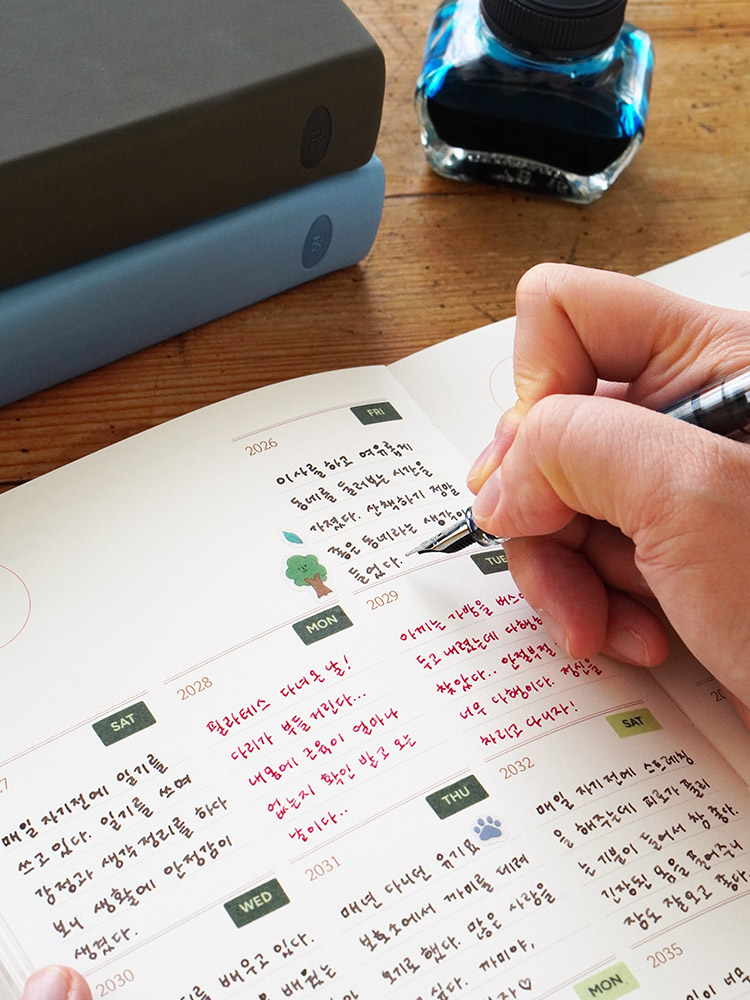 2026
FRI
이사를하고 여유롭게
동네를 둘러보는 시간을
가졌다. 산책하기 정말
좋은 동네라는 생각이
들었다.
27
SAT
매일 자기전에 일기를
쓰고 있다. 일기를 쓰며
감정과 생각정리를 하다
보니 생활에 안정감이
생겼다.
2028
MON
필라테스 다녀온 날!
다리가 부들거린다...
내몸에 근육이 얼마나
없는지 확인 받고 오는
날이다...
2029
TUE
아끼는 가방을 버스
두고 내렸는데 다행히
찾았다.. 안절부절.
너무 다행이다. 정신을
차리고 다니자!
2030
WED
를 배우고 있다.
배웠는
2031
THU
매년 다니던 유기묘
보호소에서 까미를 데려
오기로했다. 많은 사랑을
싶다. 까미야,
자♡
2032
SAT
매일 자기전에 스트레칭
을 해주는데 피로가 풀리
는 기분이 들어서 참 좋아.
긴장된 몸을 풀어주니
잠도 잘오고 좋다.
2035
MON
이 너무